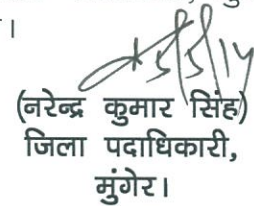 ।
(नरेन्द्र कुमार सिंह)
जिला पदाधिकारी,
मुंगेर।